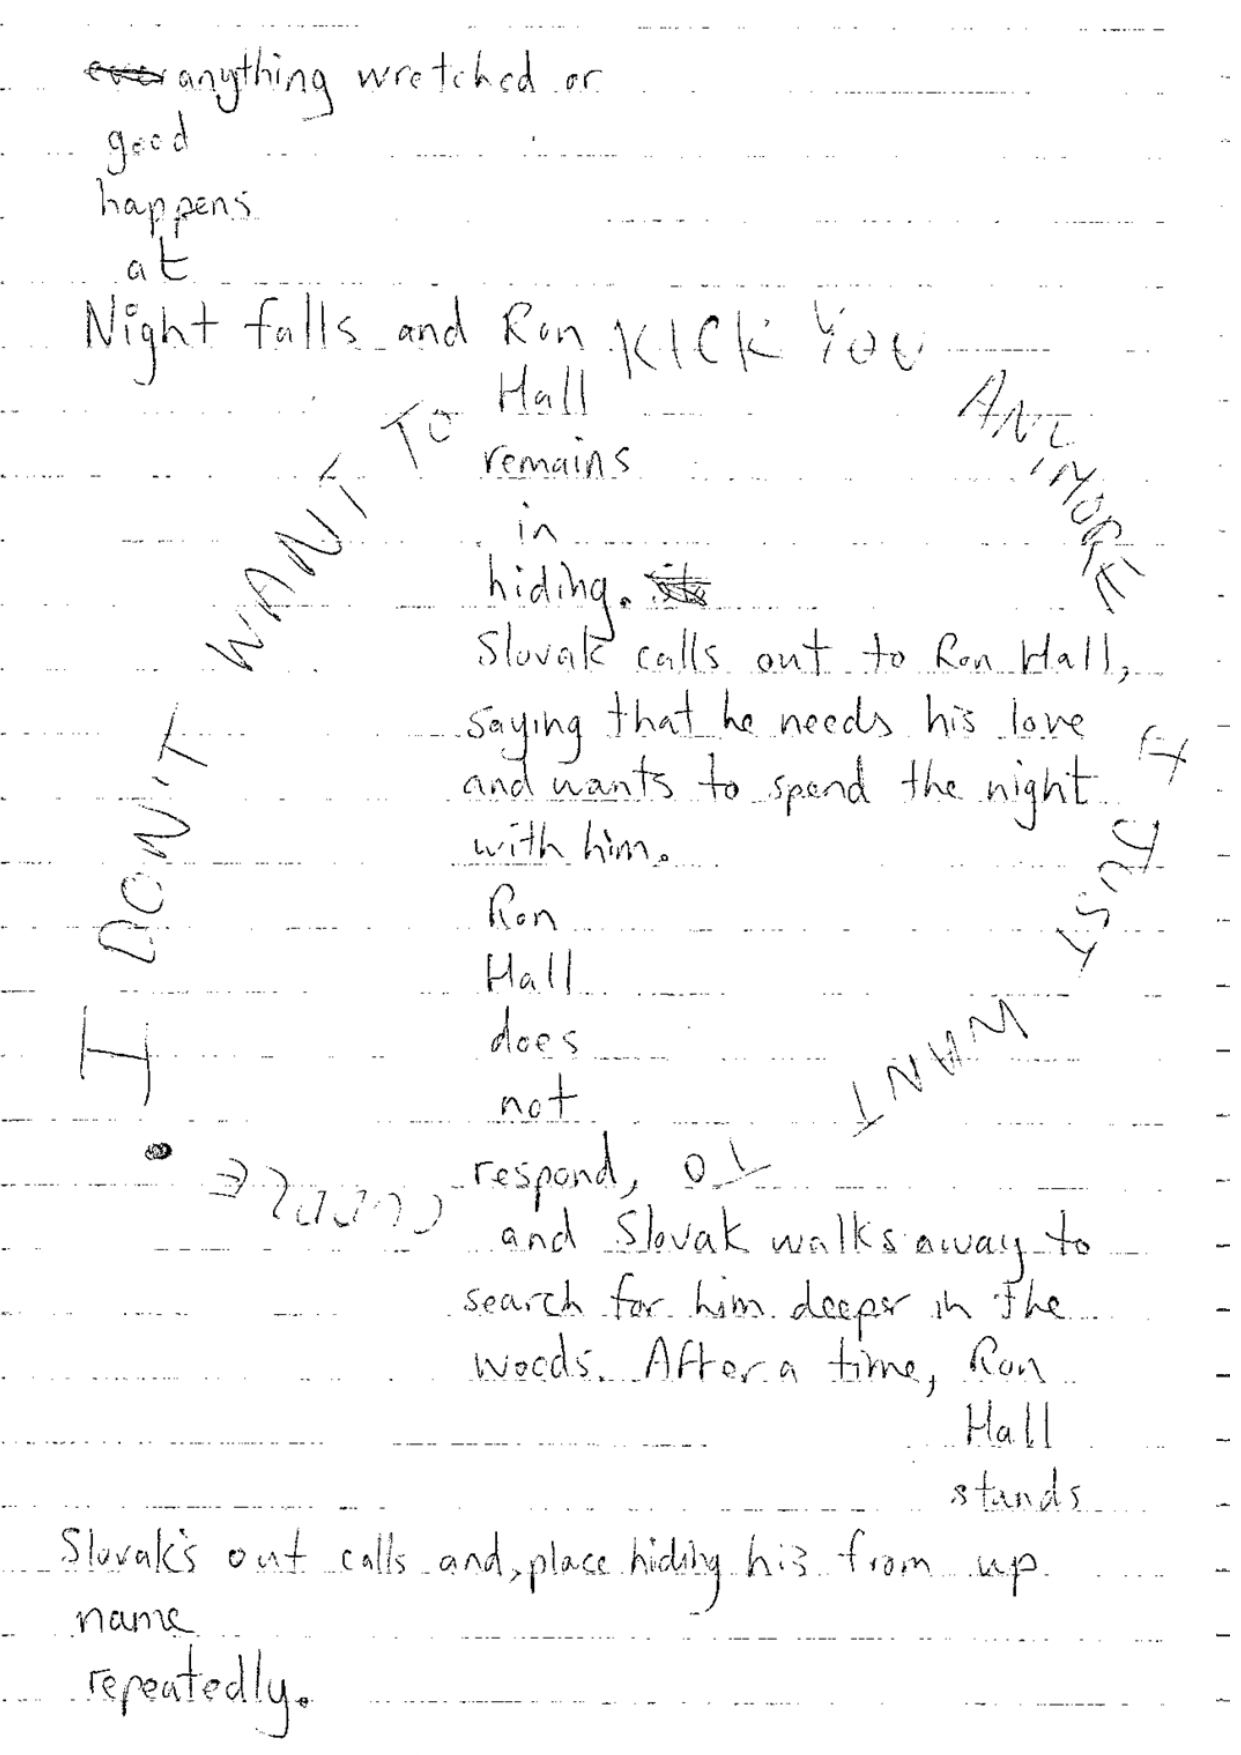 anything wretched or
good
happens
at
Night falls and Ron
Hall
remains
in
hiding.
Slovak calls out to Ron Hall,
saying that he needs his love
and wants to spend the night
with him.
Ron
Hall
does
not
respond,
and Slovak walks away to
search for him deeper in the
woods. After a time, Ron
Hall
stands
Slovak's out calls and, place hiding his from up
name
repeatedly.
I DON'T WANT TO KICK YOU ANYMORE I JUST WANT TO CUDDLE